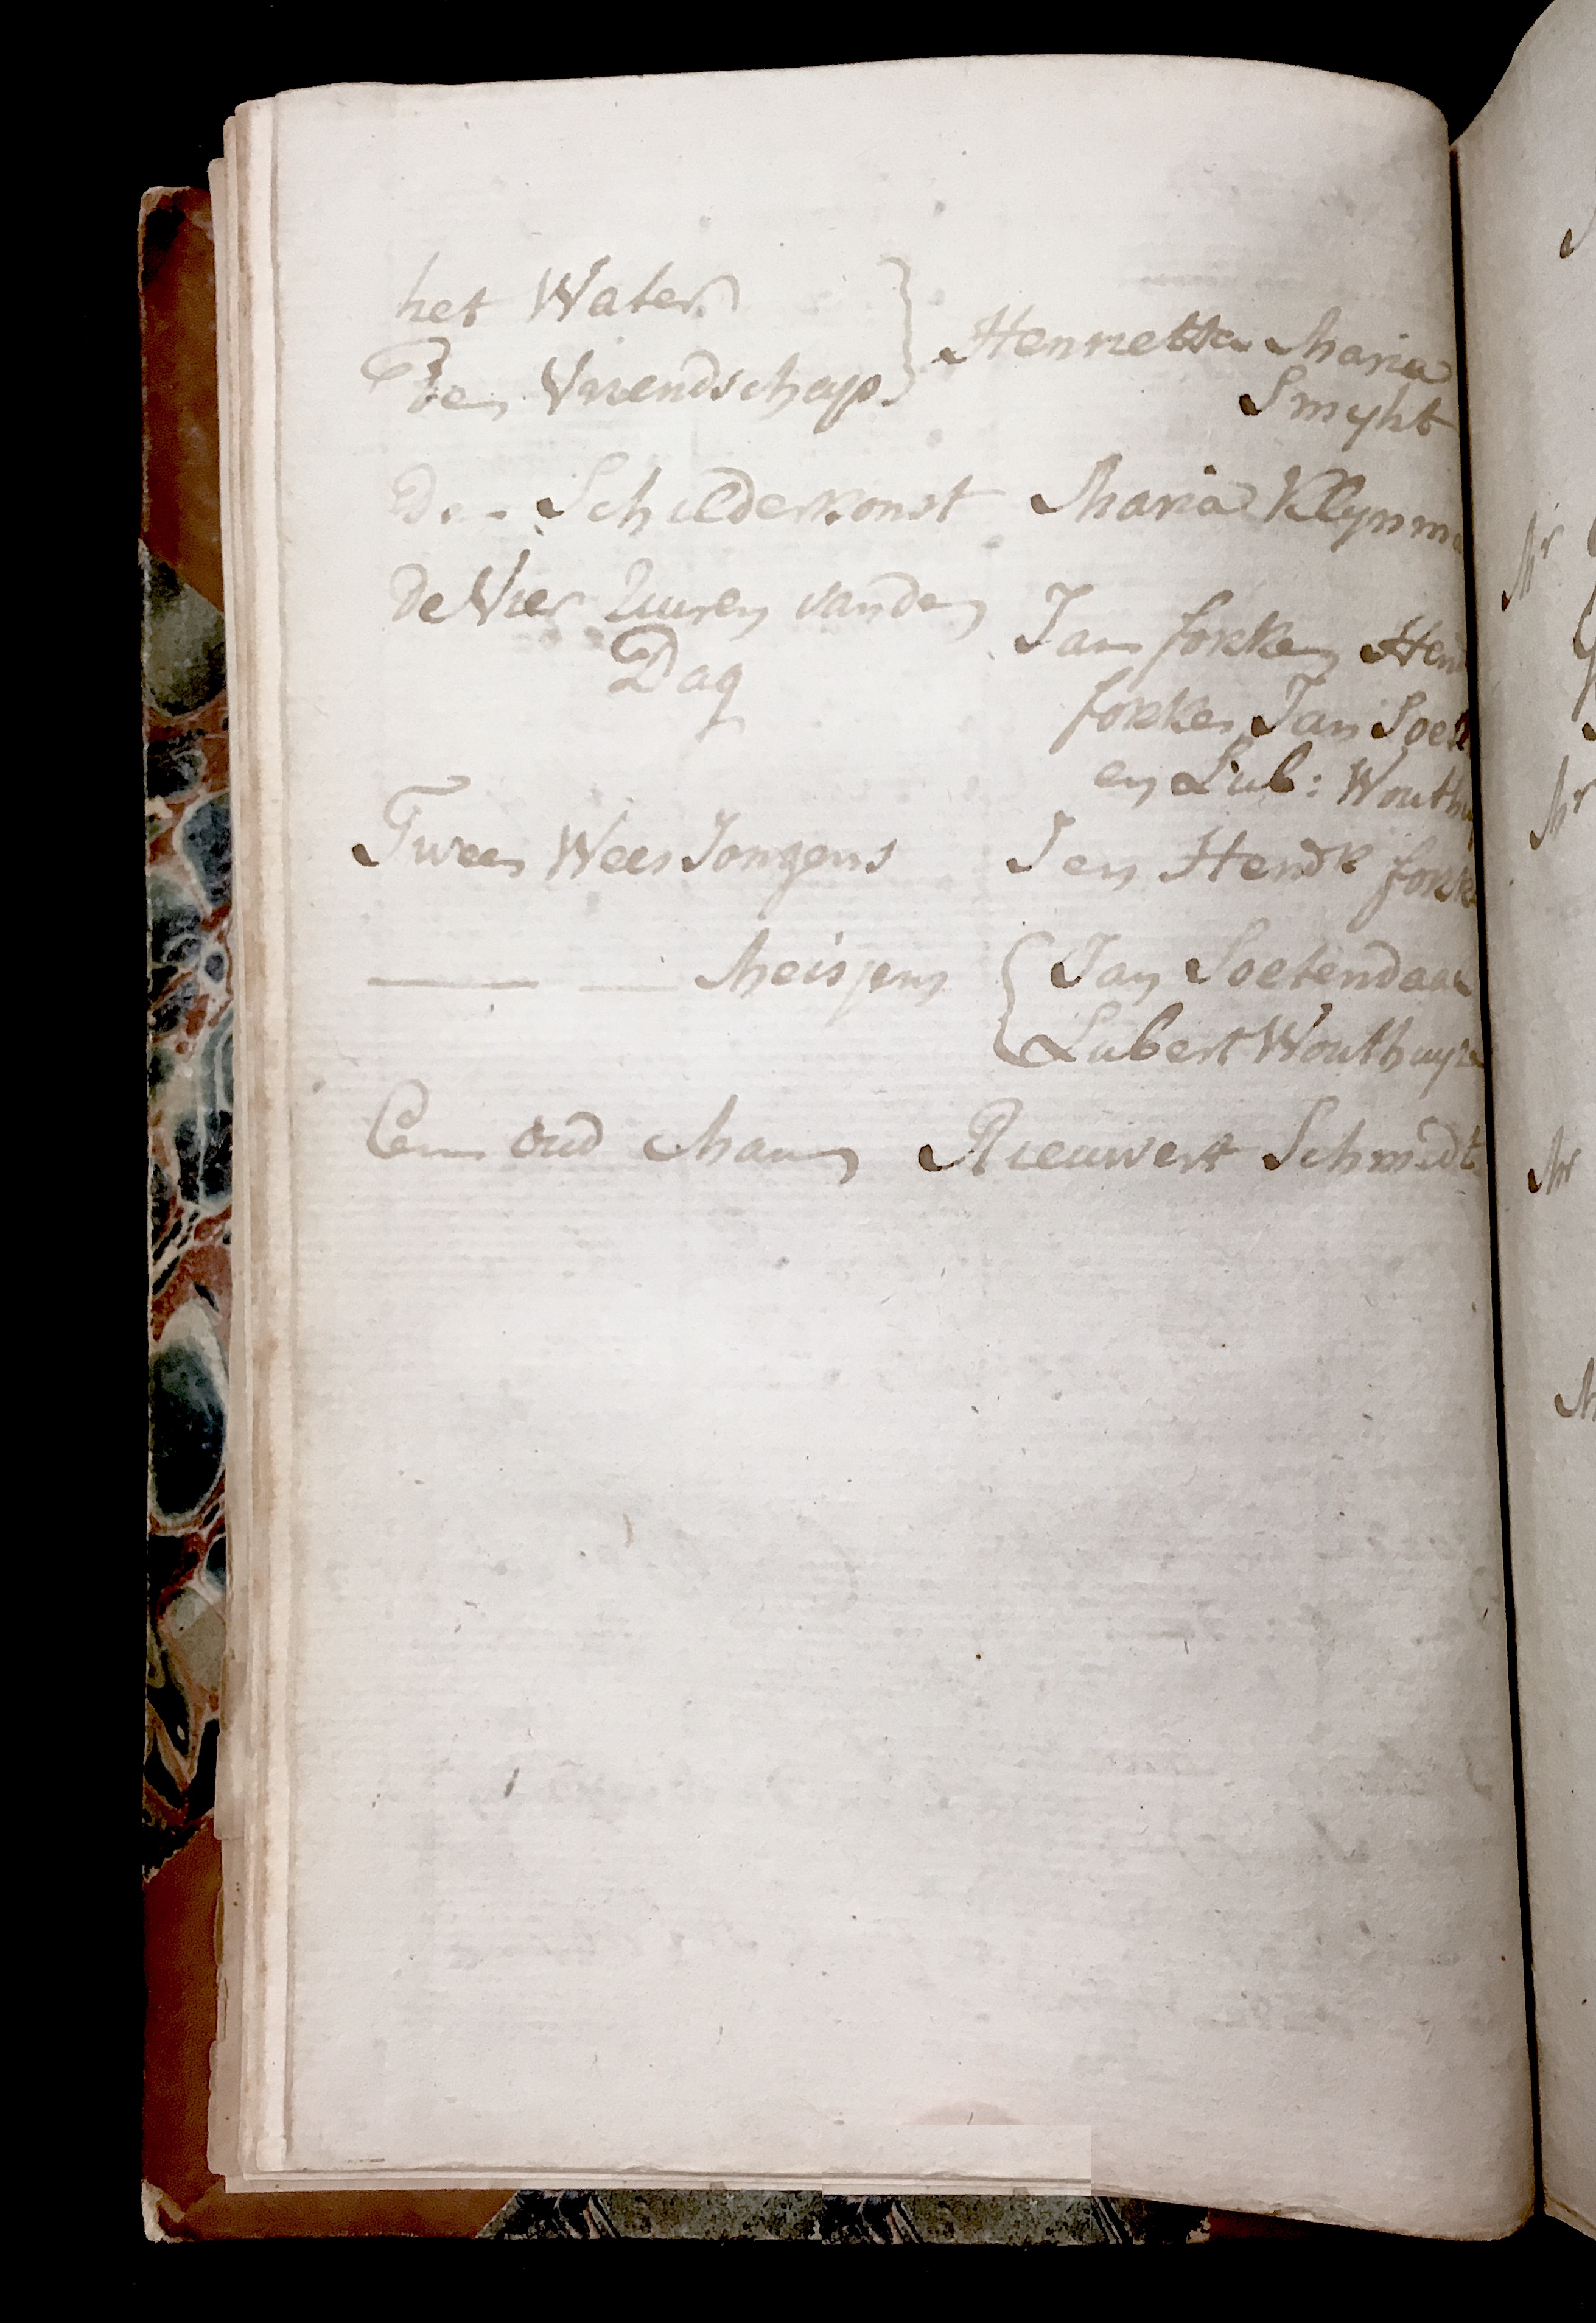 het Water
de Vriendschap } Henrietta Maria
Smyht
De Schilderkonst Maria Klynm
De Vier Uuren van den
Dag
Jan fokken Hen
fokken Jan Soet
en Lub: Wouthu
Twee Wees Jongens J en Hendk fokke
—— —— Meisjens { Jan Soetendaa
Lubert Wouthuyz
Een oud Man Rieuwert Schmidt
Mr
Mr
Mr